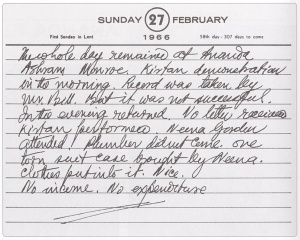 SUNDAY 27 FEBRUARY
First Sunday in Lent
1966
58th day - 307 days to come
The whole day remained at Ananda
Ashram Monroe. Kirtan demonstration
in the morning. Record was taken by
Mr. Bill. But it was not successful.
In the evening returned. No letter received
Kirtan performed Neena Gordon
attended! Plumber did not come. one
torn suit case bought by Neena.
Clothes put into it. Nice.
No income. No expenditure